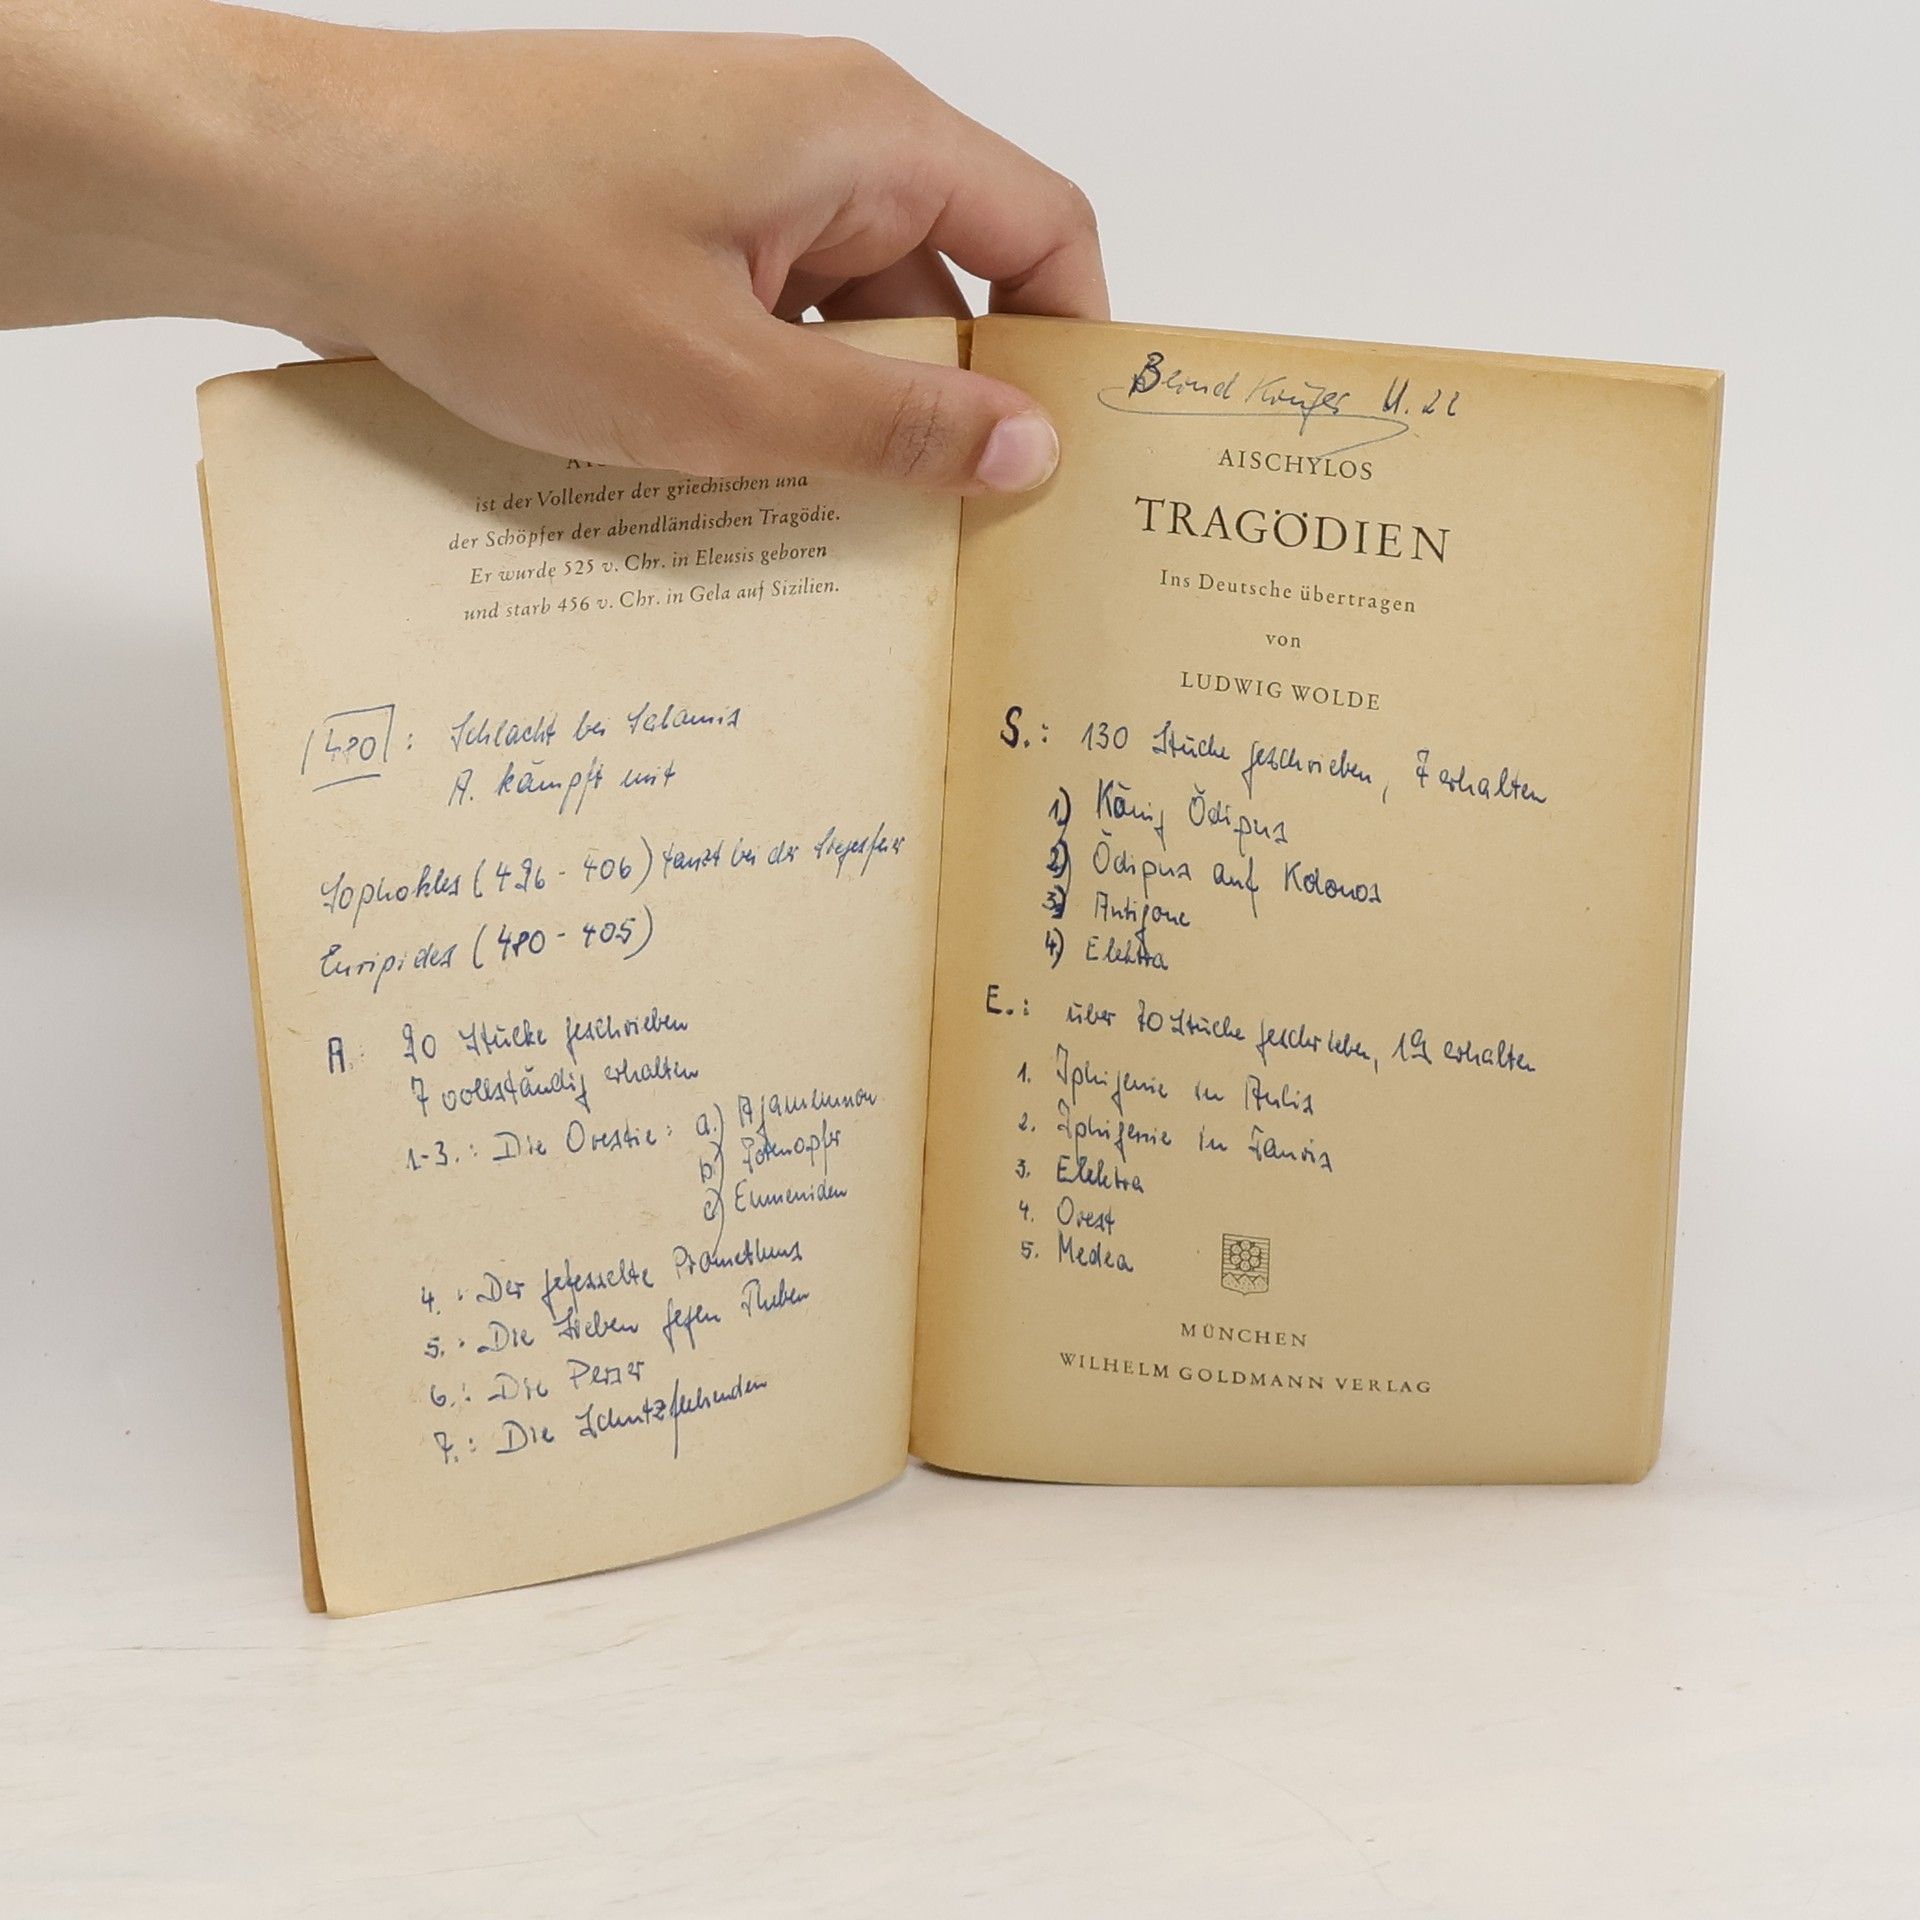 ist der Vollender der griechischen und
der Schöpfer der abendländischen Tragödie.
Er wurde 525 v. Chr. in Eleusis geboren
und starb 456 v. Chr. in Gela auf Sizilien.
480: Schlacht bei Salamis
A. kämpft mit
Sophokles (496 - 406) tanzt bei der Siegesfeier
Euripides (480 - 405)
A.: 90 Stücke geschrieben
7 vollständig erhalten
1-3.: Die Orestie: a.) Agamemnon
b) Totenopfer
c) Eumeniden
4.: Der gefesselte Prometheus
5.: Die Sieben gegen Theben
6.: Die Perser
7.: Die Schutzflehenden
Bernd Krüger U. 22
AISCHYLOS
TRAGÖDIEN
Ins Deutsche übertragen
von
LUDWIG WOLDE
S.: 130 Stücke geschrieben, 7 erhalten
1) König Ödipus
2) Ödipus auf Kolonos
3) Antigone
4) Elektra
E.: über 70 Stücke geschrieben, 19 erhalten
1. Iphigenie in Aulis
2. Iphigenie in Tauris
3. Elektra
4. Orest
5. Medea
MÜNCHEN
WILHELM GOLDMANN VERLAG